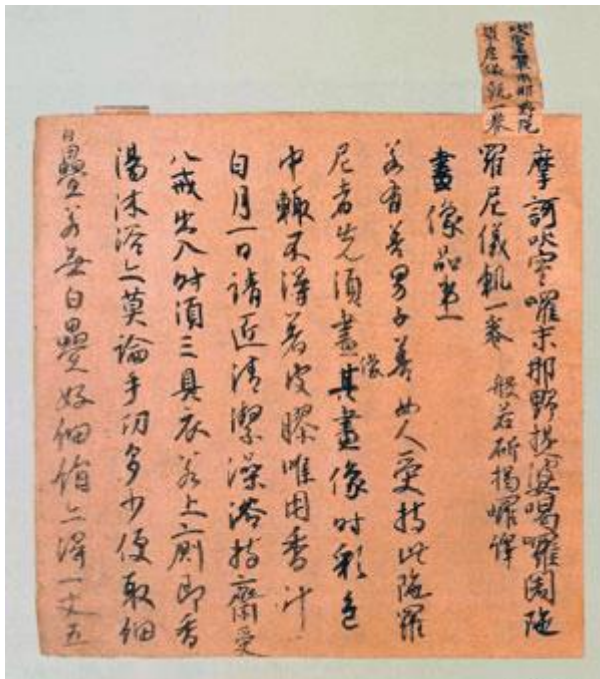 吠室囉末那野陀
羅尼儀軌一卷
摩訶吠室囉末那野提婆喝囉闍陀
羅尼儀軌一卷 般若斫羯囉譯
畫像品第一
若有善男子善女人受持此陀羅
尼者先須畫像其畫像時彩色
中輒不得著皮膠唯用香汁
白月一日請匠清潔澡浴持齋受
八戒出入時須三具衣若上廁即香
湯沐浴亦莫論手功多少便取細
白疊若無白疊好細絹亦得一丈五